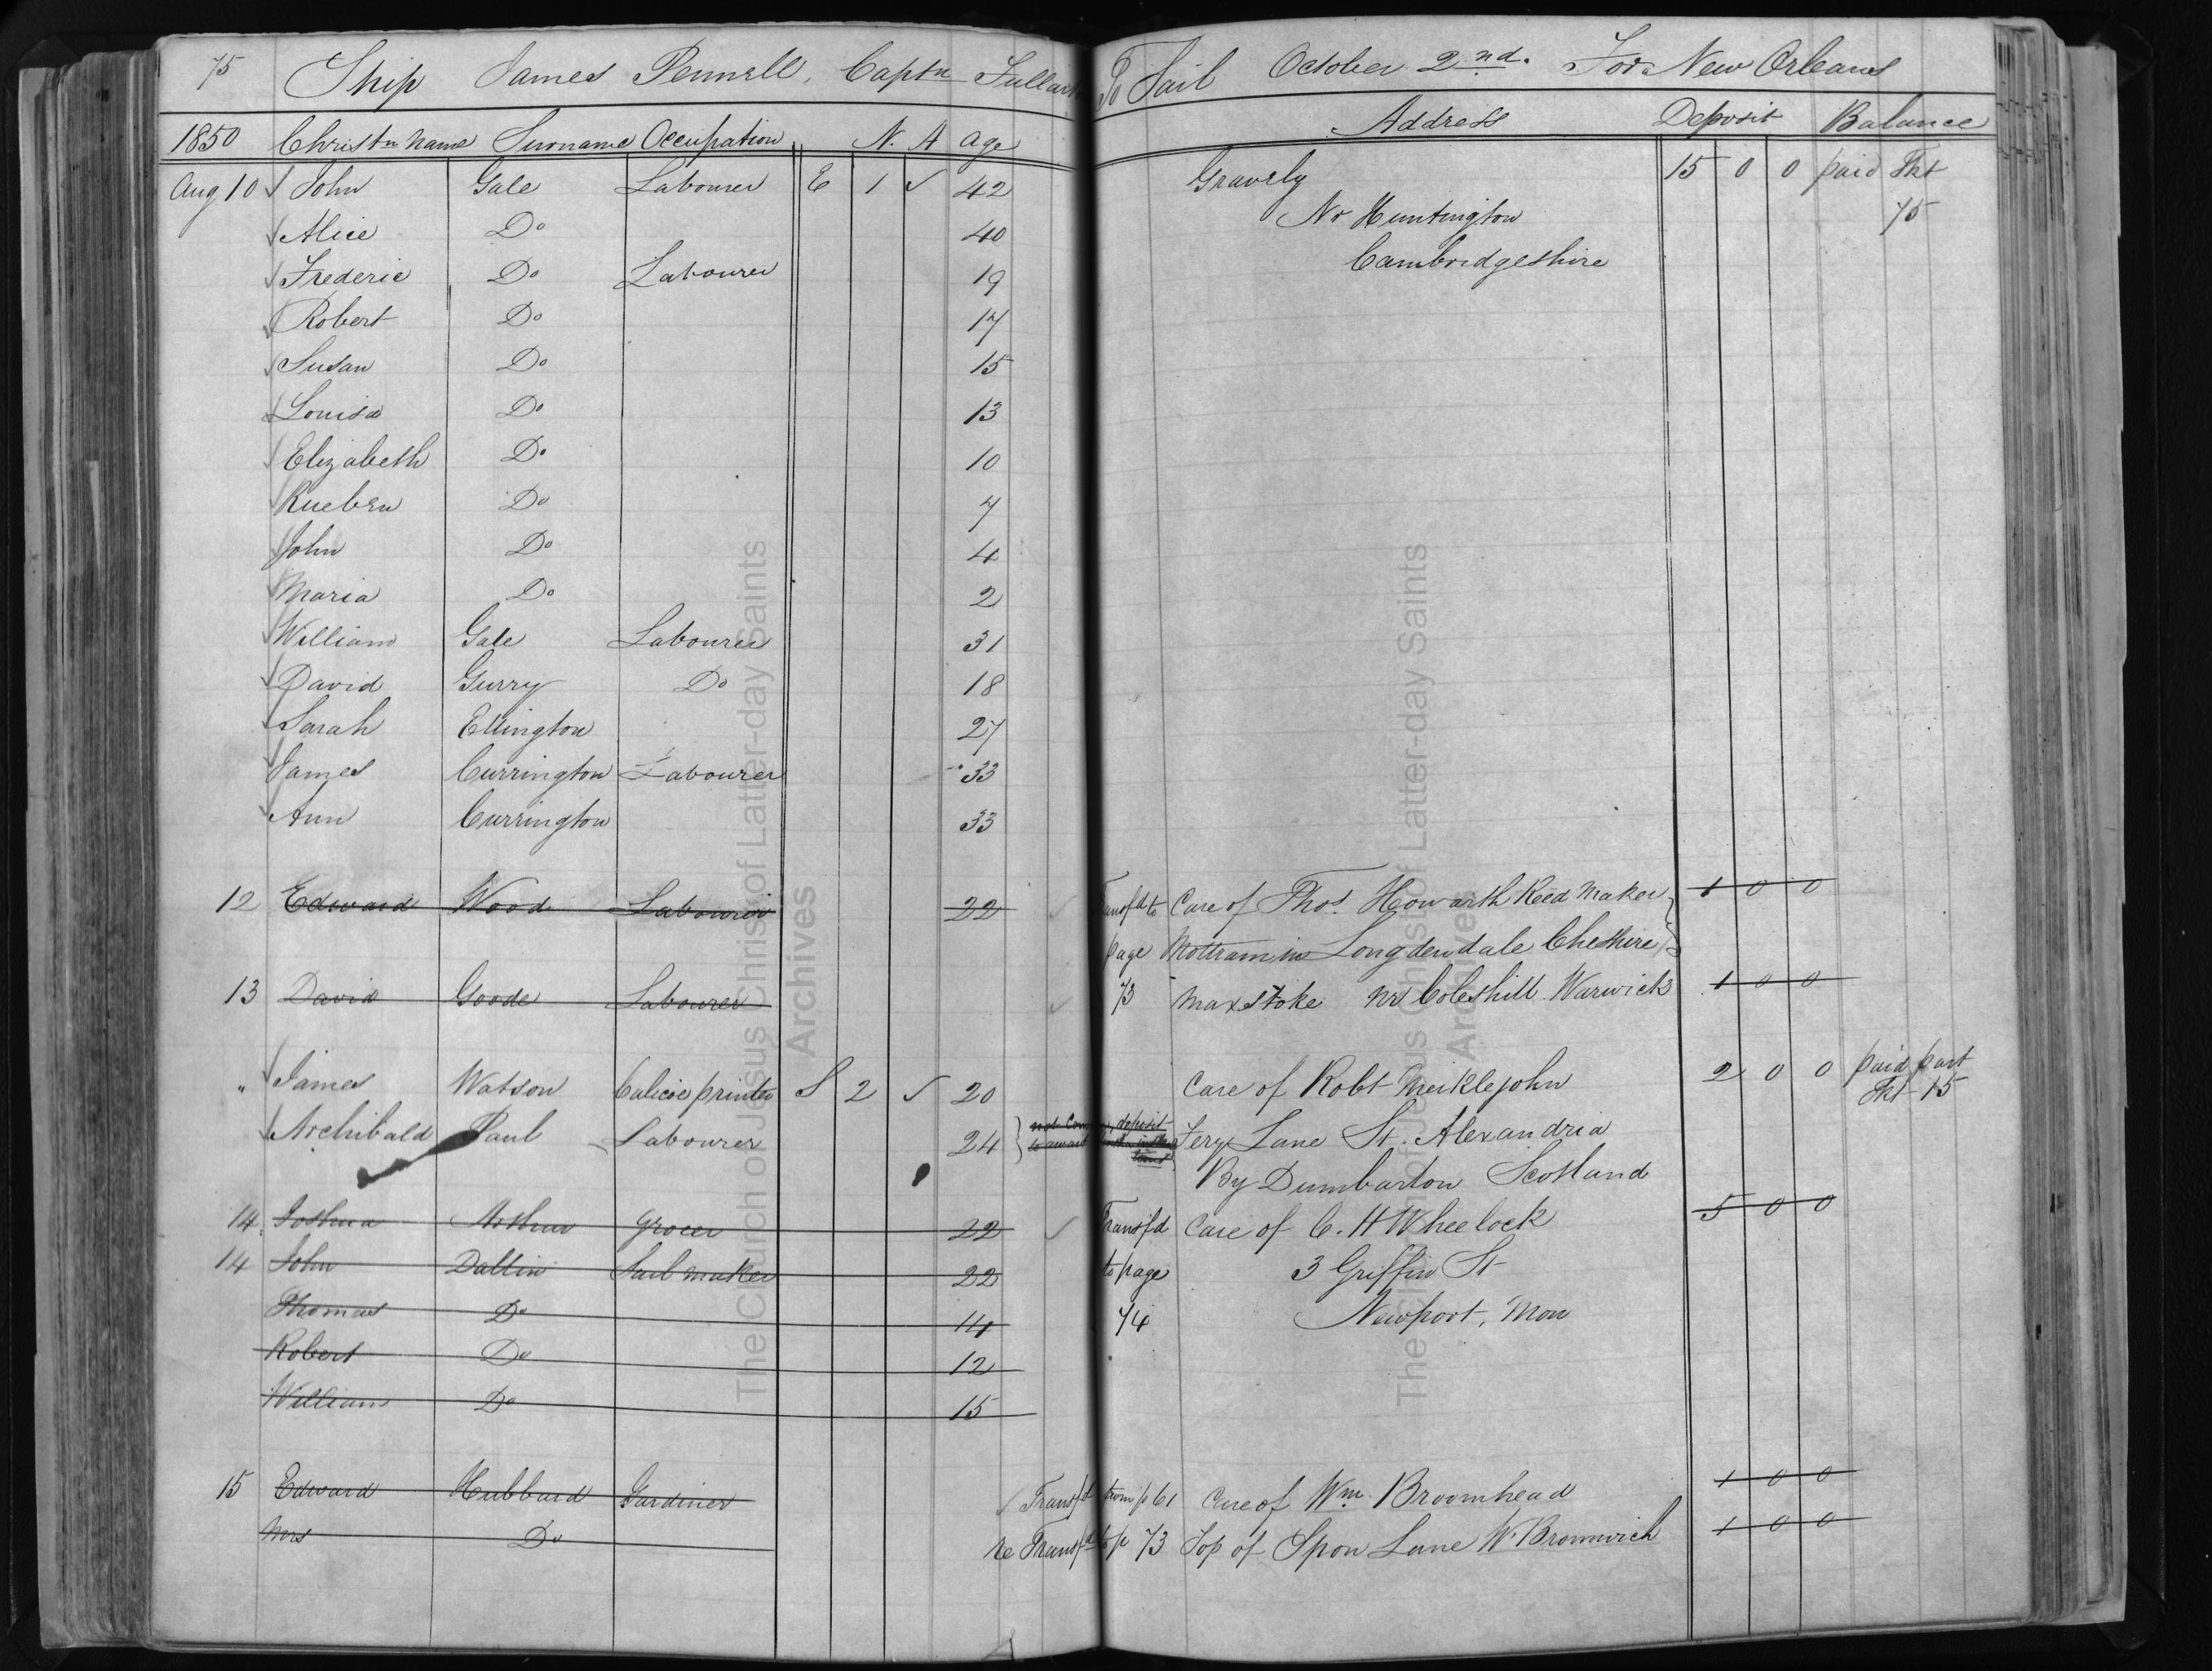 75 Ship James Pennell, Captn To Sail October 2nd. For New Orleans
1850 Christn Name Surname Occupation N. A Age Address Deposit Balance
Aug 10 John Gale Labourer E 1 ✓ 42 Gravely 15 0 0 paid Tkt
Alice Do 40 Nr Huntington 75
Frederic Do Labourer 19 Cambridgeshire
Robert Do 17
Susan Do 15
Louisa Do 13
Elizabeth Do 10
Rueben Do 7
John Do 4
Maria Do 2
William Gale Labourer 31
David Gurry Do 18
Sarah Ellington 27
James Currington Labourer 33
Ann Currington 33
12 Edward Wood Labourer 22 Transfd to Care of Thos. Howarth Reed Maker 1 0 0
page Mottram in Longdendale Cheshire
13 David Goode Labourer 73 Maxstoke nr Coleshill Warwick 1 0 0
" James Watson Calicoe printer S 2 ✓ 20 Care of Robt Meiklejohn 2 0 0 paid part
Tkt 15
Archibald Paul Labourer 24 deposit Lane St. Alexandria
By Dumbarton Scotland
14 Joshua Arthur Grocer 22 Transfd Care of C. H Wheelock 5 0 0
14 John Dallin Sail maker 22 to page 3 Griffin St
Thomas Do 14 74 Newport, Mon
Robert Do 12
William Do 15
15 Edward Hubbard Gardiner Transfd from p 61 Care of Wm Broomhead 1 0 0
Mrs Do re Transfd to p 73 Top of Spon Lane W. Bromwich 1 0 0
The Church of Jesus Christ of Latter-day Saints
Archives
The Church of Jesus Christ of Latter-day Saints
Archives